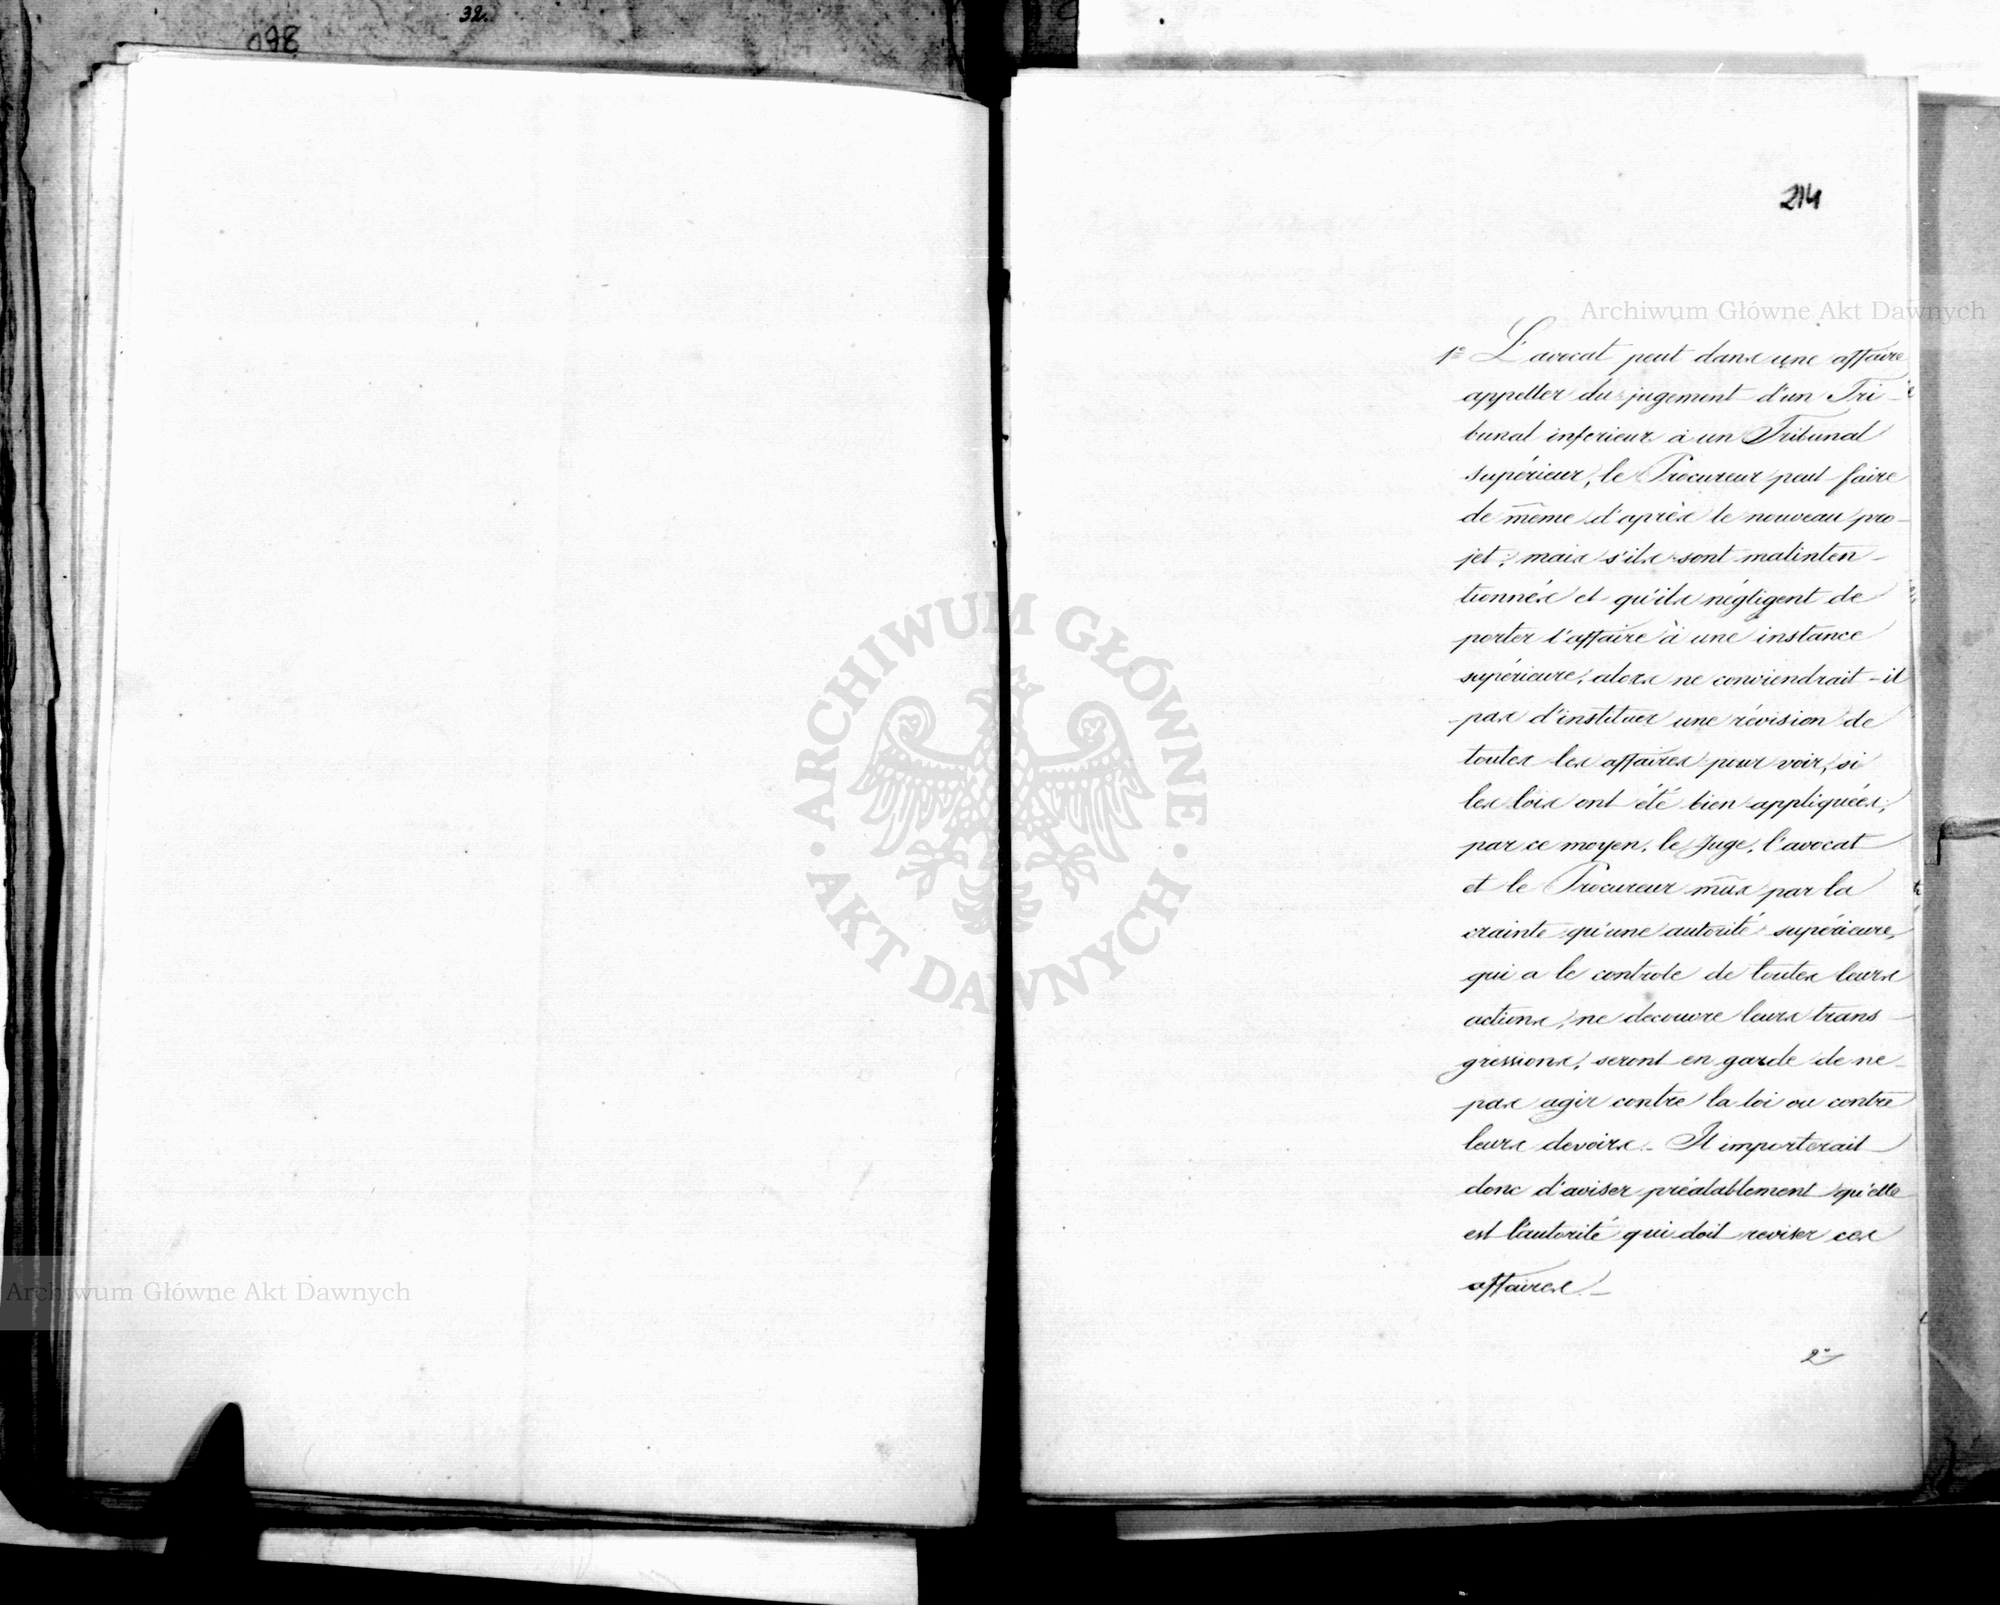 32.
098
214
Archiwum Główne Akt Dawnych
1º L'avocat peut dans une affaire
appeller du jugement d'un Tri-
bunal inferieur à un Tribunal
supérieur, le Procureur peut faire
de même d'après le nouveau pro-
jet; mais s'ils sont malinten-
tionnés et qu'ils négligent de
porter l'affaire à une instance
supérieure, alors ne conviendrait-il
pas d'instituer une révision de
toutes les affaires pour voir, si
les lois ont été bien appliquées;
par ce moyen, le Juge, l'avocat
et le Procureur mûs par la
crainte qu'une autorité supérieure,
qui a le controle de toutes leurs
actions, ne decouvre leurs trans-
gressions, seront en garde de ne
pas agir contre la loi ou contre
leurs devoirs.- Il importerait
donc d'aviser préalablement qu'elle
est l'autorité qui doit reviser ces
affaires.-
2º
ARCHIWUM GŁÓWNE
AKT DAWNYCH
Archiwum Główne Akt Dawnych